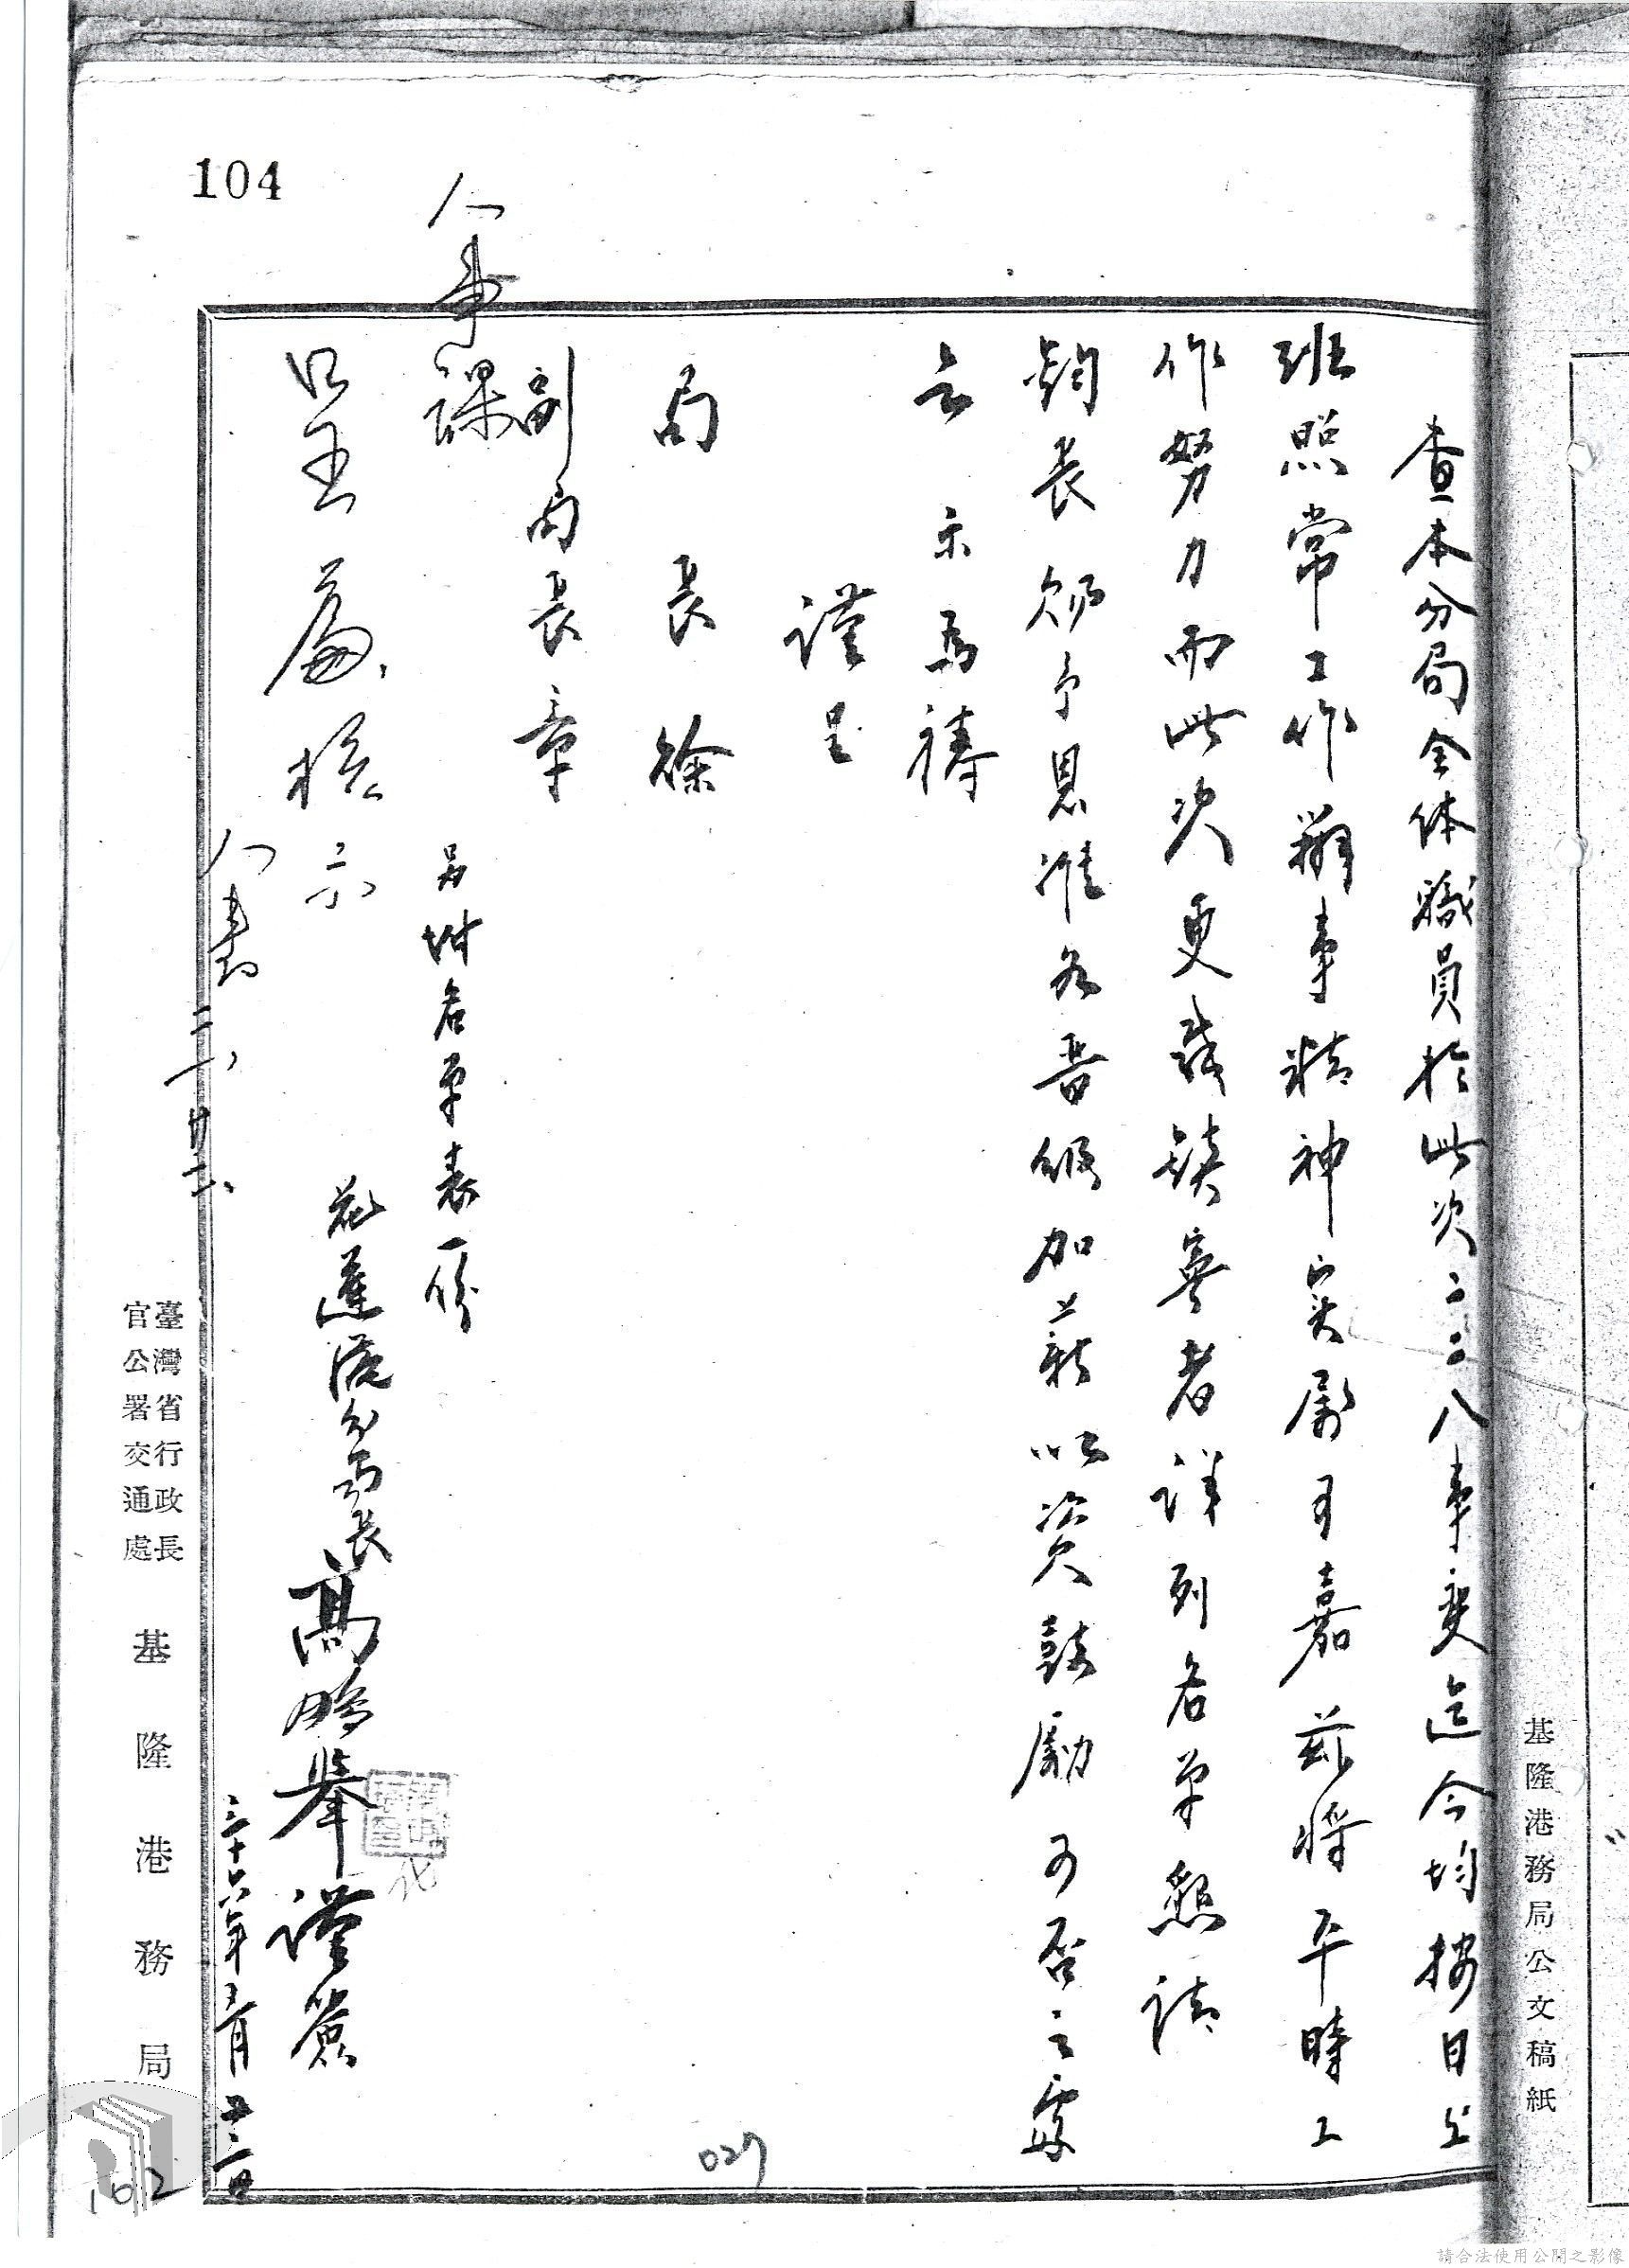 104
基隆港務局公文稿紙
查本分局全体職員於此次二二八事変迄今均按日上
班照常工作辦事精神实屬可嘉茲將平時工
作努力而此次更為鎮寧者詳列名单懇請
鈞長賜予恩准各晋級加薪以資鼓勵可否之處
示為禱
謹呈
局長徐
副局長章
人事課
另附名单表一份
花蓮港分局長高鵬舉謹簽
三十六年三月廿二日
核示
臺灣省行政長
官公署交通處
基隆港務局
027
102
請合法使用公開之影像